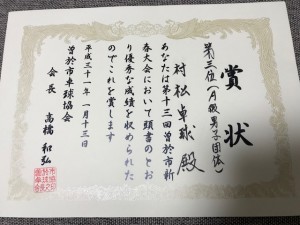 賞状
第三位(A級男子団体)
村松卓球殿
あなたは第十三回曽於市新
春大会において頭書のとお
り優秀な成績を収められた
のでこれを賞します
平成三十一年 一月十三日
曽於市卓球協会
会長 高橋和弘